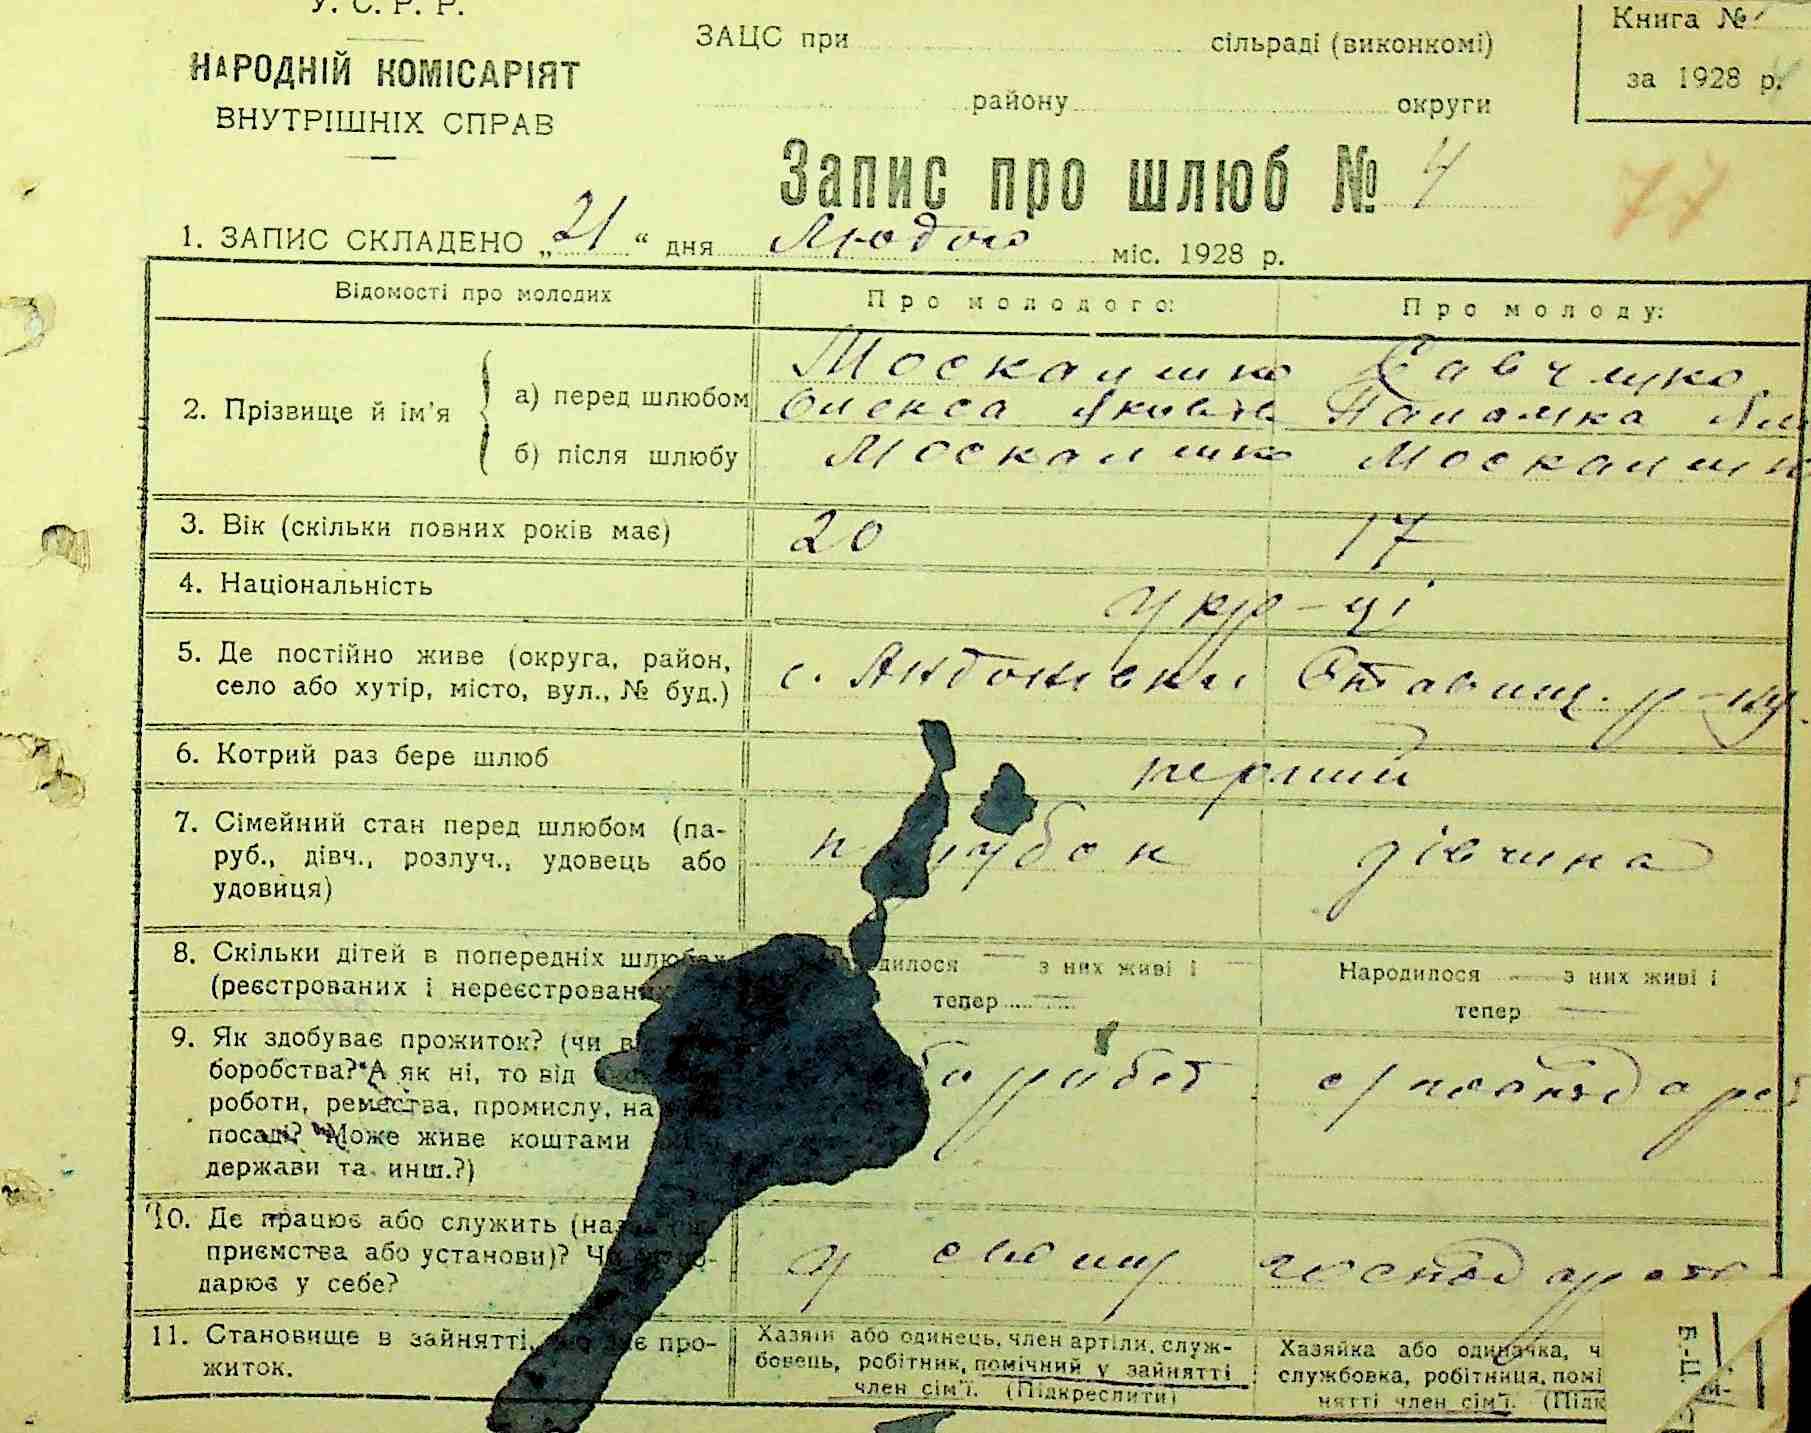 У. С. Р. Р.
НАРОДНІЙ КОМІСАРІЯТ
ВНУТРІШНІХ СПРАВ
ЗАЦС при сільраді (виконкомі)
району округи
Книга №
за 1928 р.
Запис про шлюб № 4
77
1. ЗАПИС СКЛАДЕНО „21“ дня Лютого міс. 1928 р.
Відомості про молодих Про молодого: Про молоду:
2. Прізвище й ім'я
а) перед шлюбом
Москалишко Савчишко
Олекса Яковів Паламка
б) після шлюбу Москалишко Москалишко
3. Вік (скільки повних років має) 20 17
4. Національність укр-ці
5. Де постійно живе (округа, район,
село або хутір, місто, вул., № буд.) с. Антонівки Ставищ. р-ну
6. Котрий раз бере шлюб перший
7. Сімейний стан перед шлюбом (па-
руб., дівч., розлуч., удовець або
удовиця)
парубок дівчина
8. Скільки дітей в попередніх шлюбах
(реєстрованих і нереєстрованих
дилося — з них живі і —
тепер —
Народилося — з них живі і
тепер —
9. Як здобуває прожиток? (чи в
боробства? А як ні, то від
роботи, ремества, промислу, на
посаді? Може живе коштами
держави та инш.?)
10. Де працює або служить (на
приємства або установи)? Ч
дарює у себе?
у свому господарстві
11. Становище в зайнятті, що дає про-
житок.
Хазяїн або одинець, член артіли, служ-
бовець, робітник, помічний у зайнятті
член сім'ї. (Підкреслити)
Хазяйка або одиначка, ч
службовка, робітниця, помі
нятті член сім'ї. (Підк